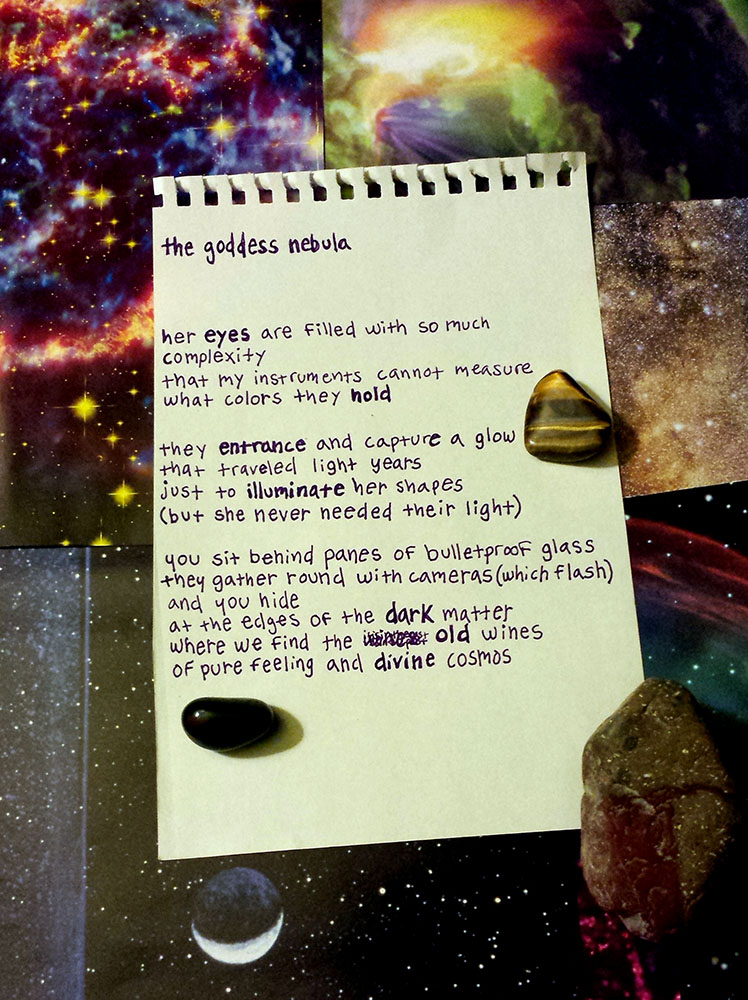 the goddess nebula
her eyes are filled with so much
complexity
that my instruments cannot measure
what colors they hold
they entrance and capture a glow
that traveled light years
just to illuminate her shapes
(but she never needed their light)
you sit behind panes of bulletproof glass
they gather round with cameras (which flash)
and you hide
at the edges of the dark matter
where we find the old wines
of pure feeling and divine cosmos